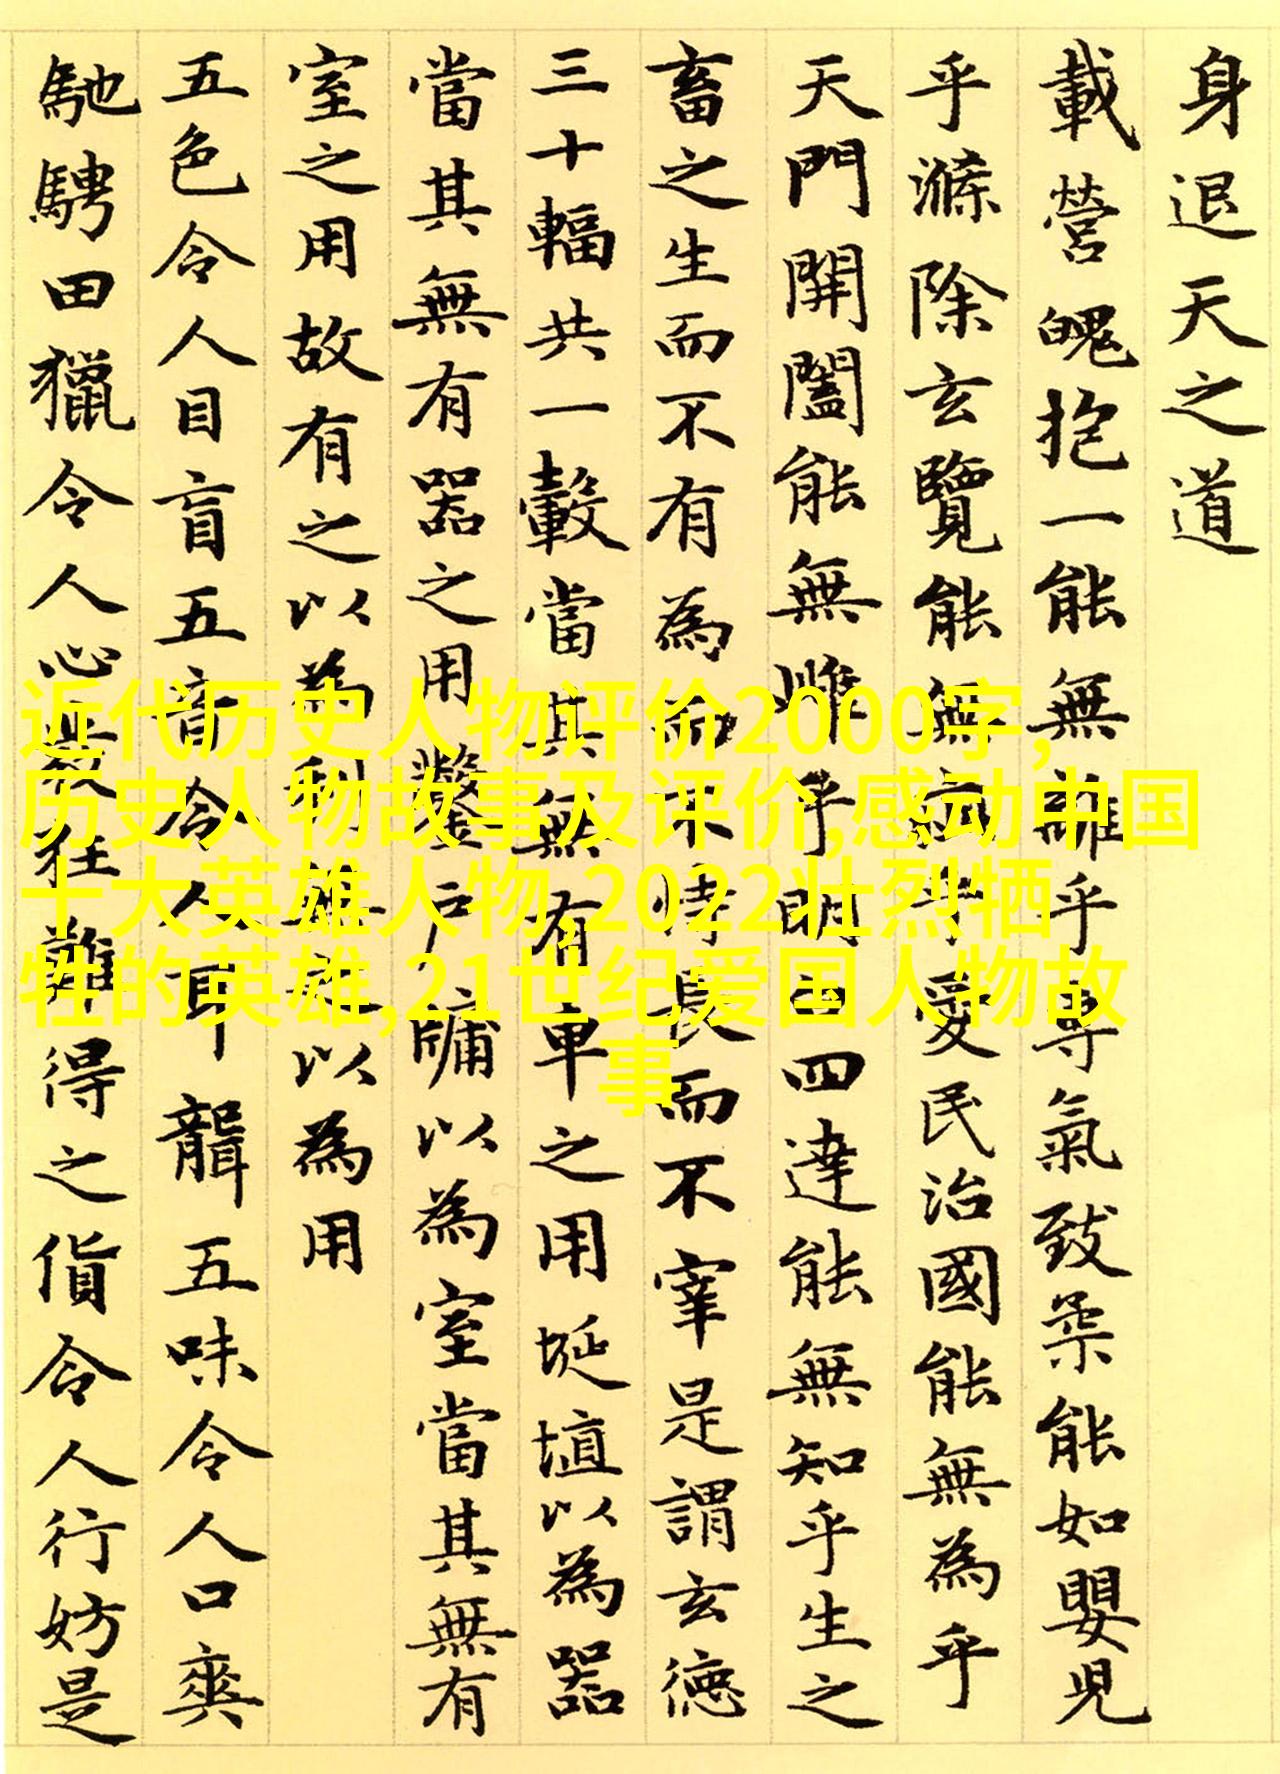 身退天之道
載營魄抱一能無離乎專氣致柔能如嬰兒
乎滌除玄覽能無疵乎愛民治國能無為乎
天門開闔能無雌乎明白四達能無知乎生之
畜之生而不有為而不恃長而不宰是謂玄德
三十輻共一轂當其無有車之用埏埴以為器
當其無有器之用鑿戶牖以為室當其無有
室之用故有之以為利無之以為用
五色令人目盲五音令人耳聾五味令人口爽
馳騁田獵令人心發狂難得之貨令人行妨是
近代历史人物评价2000字,
历史人物故事及评价,感动中国
十大英雄人物,2022壮烈牺
牲的英雄,21世纪爱国人物故
事